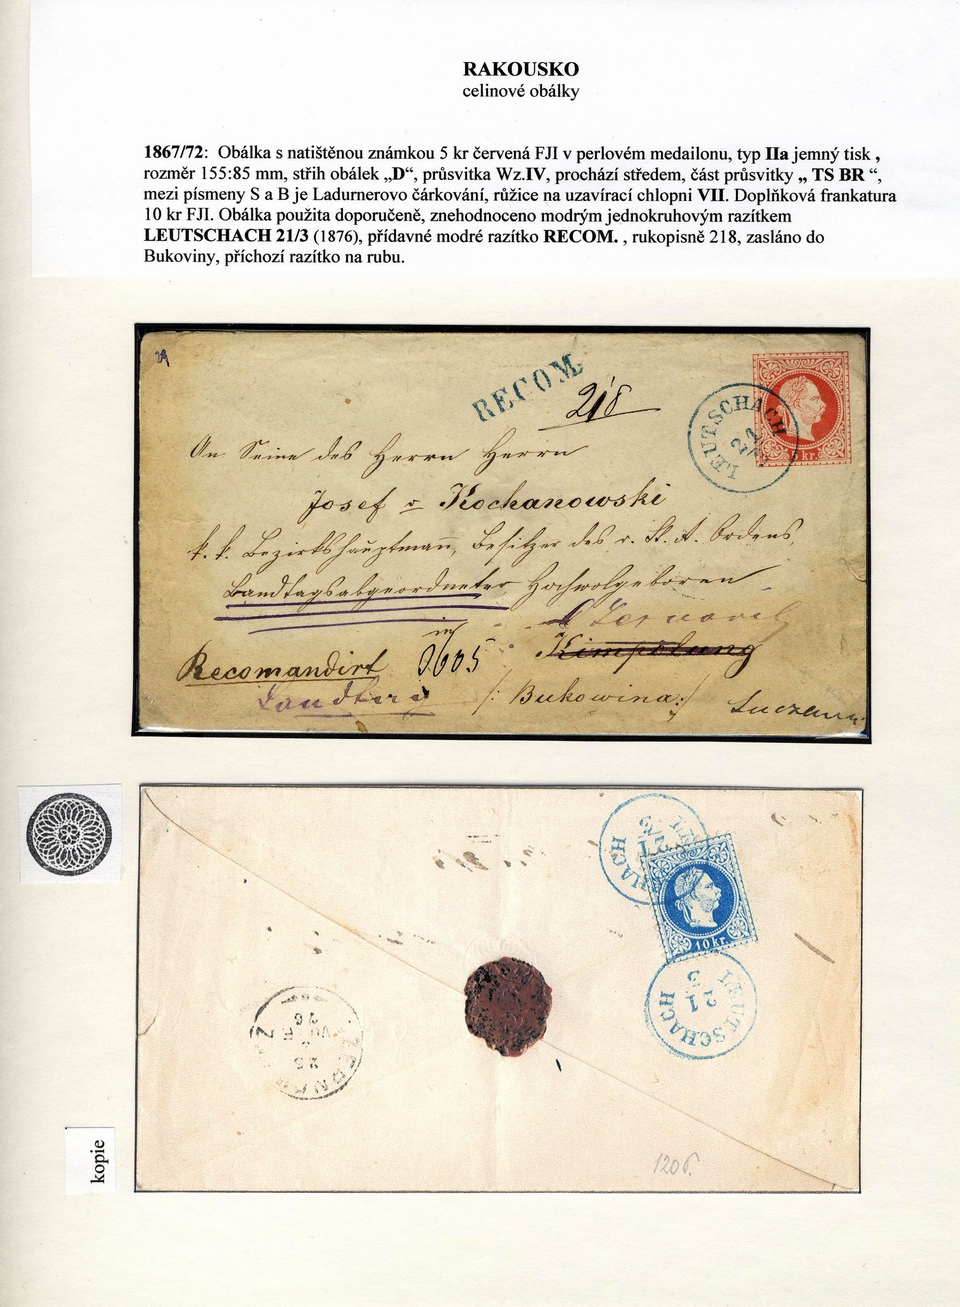 RAKOUSKO
celinové obálky
1867/72: Obálka s natištěnou známkou 5 kr červená FJI v perlovém medailonu, typ IIa jemný tisk ,
rozměr 155:85 mm, střih obálek „D“, průsvitka Wz.IV, prochází středem, část průsvitky „ TS BR “,
mezi písmeny S a B je Ladurnerovo čárkování, růžice na uzavírací chlopni VII. Doplňková frankatura
10 kr FJI. Obálka použita doporučeně, znehodnoceno modrým jednokruhovým razítkem
LEUTSCHACH 21/3 (1876), přídavné modré razítko RECOM. , rukopisně 218, zasláno do
Bukoviny, příchozí razítko na rubu.
RECOM.
218
LEUTSCHACH
5 kr.
An Seine des Herrn Herrn
Josef v Kochanowski
k. k. Bezirkshauptmann, Besitzer des r. St. A. Ordens,
Landtagsabgeordneter, Hochwolgeboren
in
Kimpolung
Recomandirt
/: Bukowina :/
LEUTSCHACH
21
3
10 kr.
LEUTSCHACH
21
3
kopie